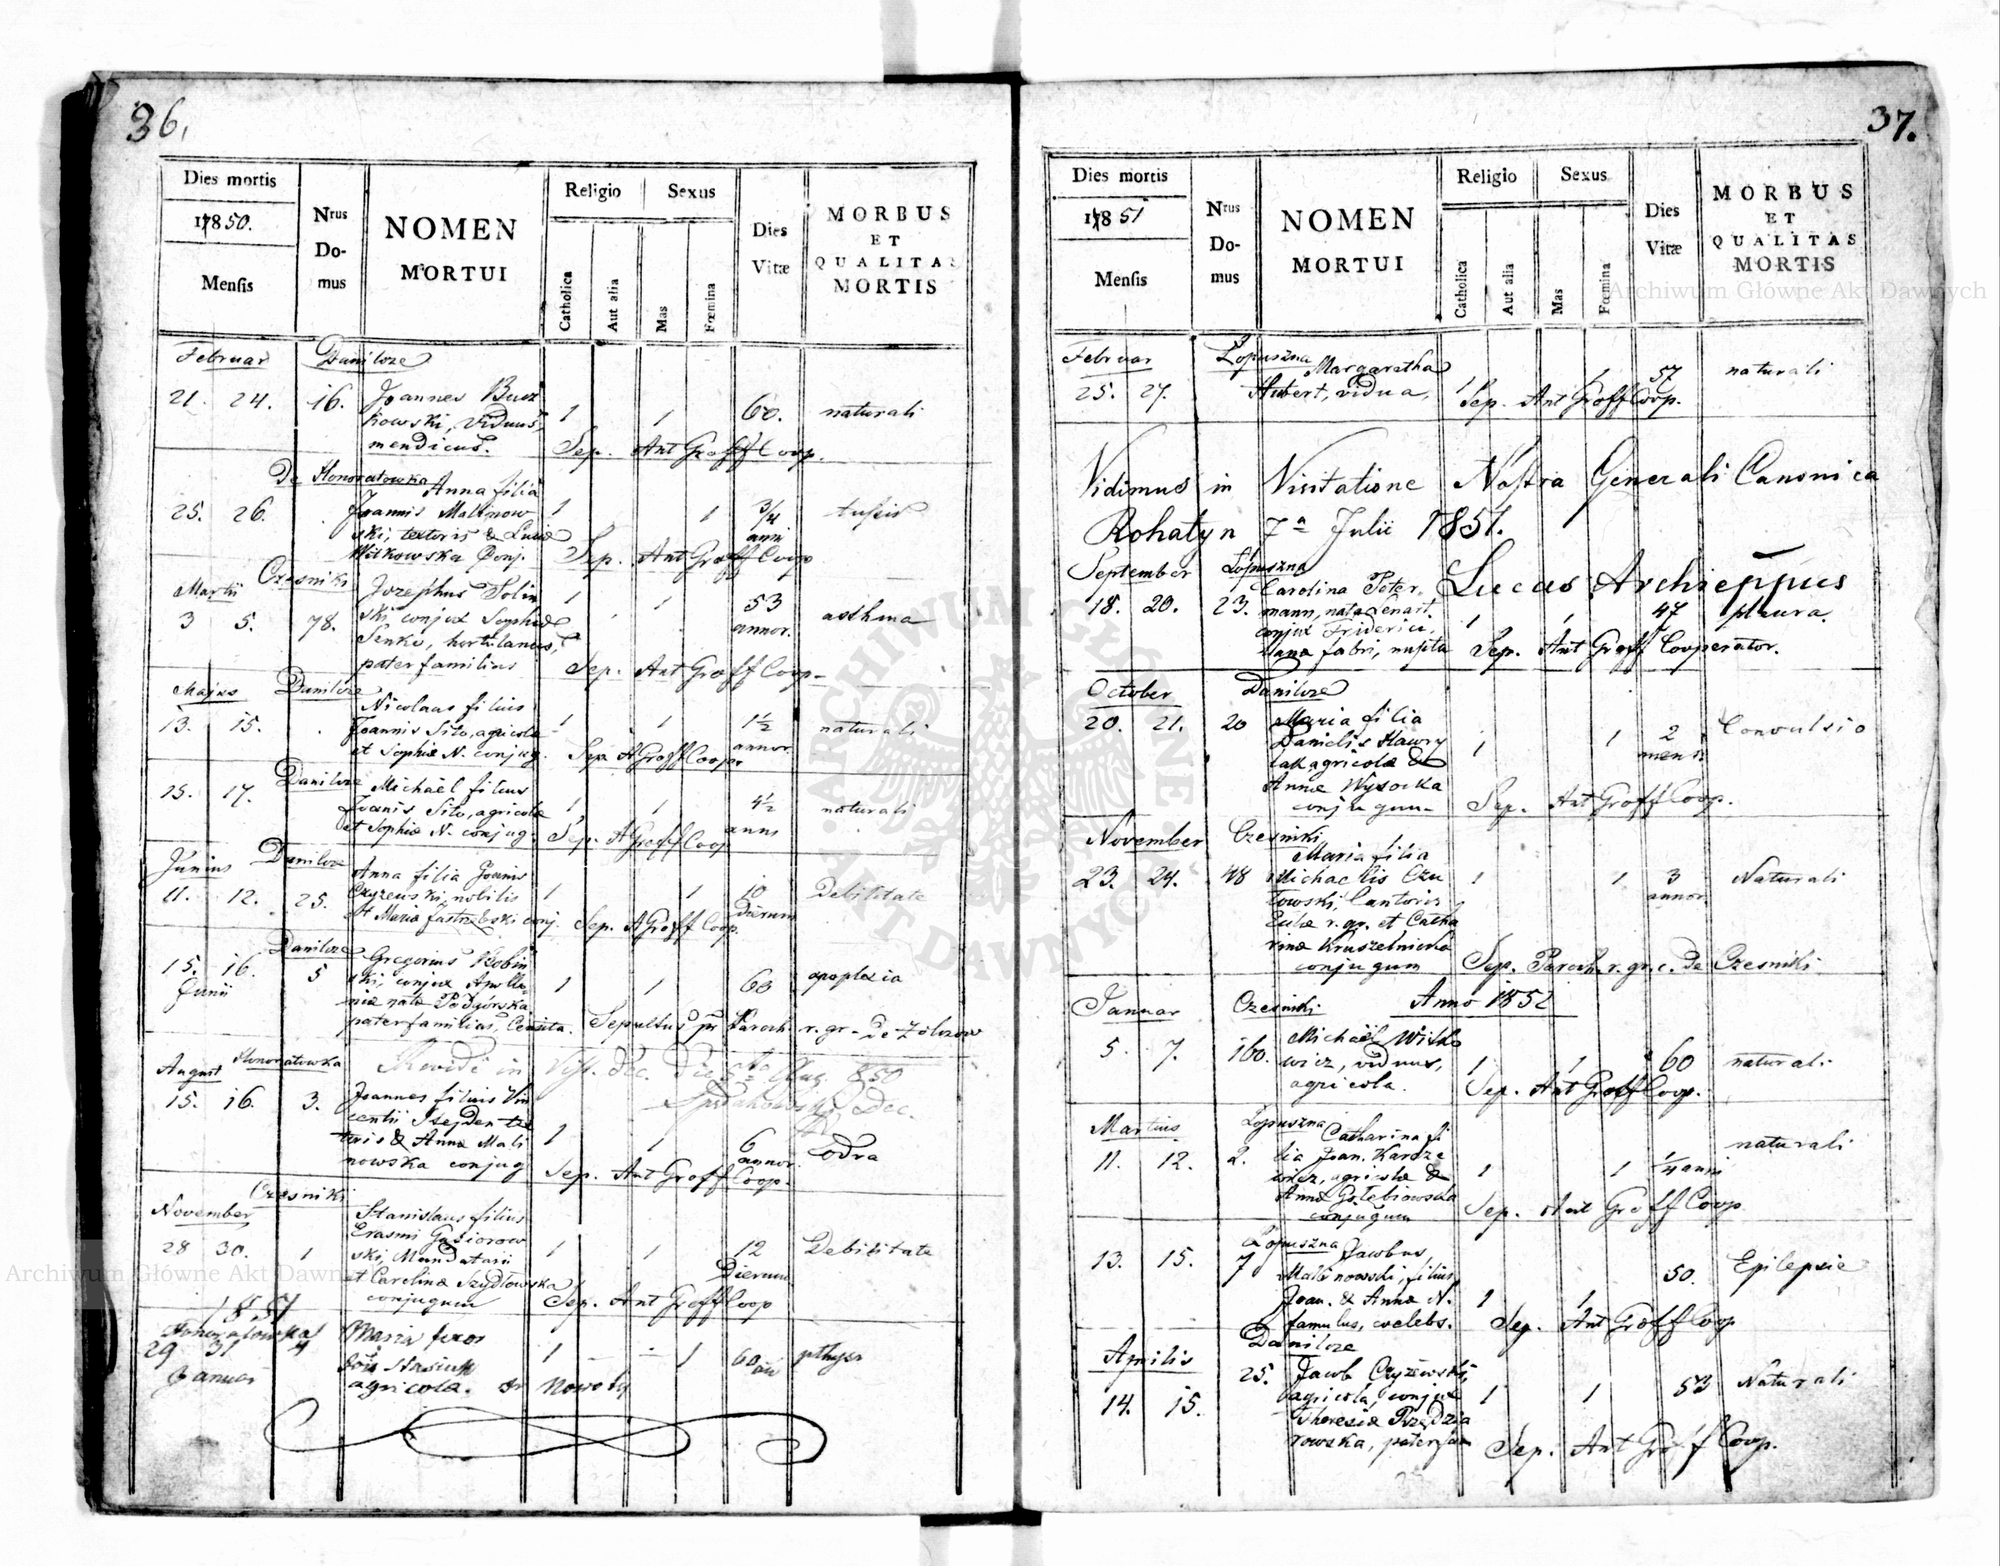 36.
Dies mortis
1850.
Mensis
Nrus Do-mus
NOMEN
MORTUI
Religio
Sexus
Catholica
Aut alia
Mas
Fœmina
Dies Vitæ
MORBUS
ET
QUALITAS
MORTIS
Februar Danilcze
21. 24. 16. Joannes Bucz
kowski, viduus, 1 1 60. naturali
mendicus. Sep. Ant Groff Coop.
De Honoratowka Anna filia
25. 26. Joannis Malinow 1 1 3/4 tussis
ski, textoris & Luciæ anni
Witkowska Conj. Sep. Ant Groff Coop
Martii Czesniki Josephus Solin
3 5. 78. ski, conjux Sophiæ 1 1 53 asthma
Senko, hortulanus, annor.
pater familias Sep. Ant Groff Coop.
Majus Danilcze Nicolaus filius
13. 15. Joannis Sito, agricolæ 1 1 1½ naturali
et Sophiæ N. conjug. Sep A Groff Coop. annor.
Danilcze Michaël filius
15. 17. Joānis Sito, agricolæ 1 1 4½ naturali
et Sophiæ N. conjug. Sep. A Groff Coop anni
Junius Danilcze Anna filia Joānis
11. 12. 25. Czyzewski, nobilis 1 1 10 Debilitate
et Maria Jastrzebski conj. Sep. A Groff Coop. dierum
Danilcze Gregorius
15. 16. 5 ski, conjux Apollo 1 1 60 apoplexia
Junii niæ nata Podgórska
pater familias, Sepultus pr Paroch. r. gr. de Zolczow
August Honoratowka Revidi in Visit. Dec. Die Aug. 850
15. 16. 3. Joannes filius Vin Dec.
centii tex
toris & Annæ Mali 1 1 6 odra
nowska conjug annor.
Sep. Ant Groff Coop.
Czesniki
November Stanislaus filius
28 30. 1 Erasmi Gąsiorow
ski, Mandatarii 1 1 12 Debilitate
et Carolinæ Szydłowska Dierum
conjugum Sep. Ant Groff Coop
1851
Honoratowka Maria uxor
29 31 4 Stasiuk 1 1 60
Januar agricola. Nowody
37.
Dies mortis
1851
Mensis
Nrus Do-mus
NOMEN
MORTUI
Religio
Sexus
Catholica
Aut alia
Mas
Fœmina
Dies Vitæ
MORBUS
ET
QUALITAS
MORTIS
Februar Łopuszna Margaretha
25. 27. Hubert, vidua, 1 1 57 naturali
Sep. Ant Groff Coop.
Vidimus in Visitatione Nostra Generali Canonica
Rohatyn 7a Julii 1851.
Lucas Archieppus
September Łopuszna Carolina Peter
18. 20. 23. mann, nata Lenart. 1 1 47 pleura.
conjux Friderici,
fabri, nupta Sep. Ant Groff Cooperator.
October Danilcze
20. 21. 20 Maria filia
Danielis Hawry 1 1 2 Convulsio
lak agricolæ & mens.
Annæ Wysocka
conjugum Sep. Ant Groff Coop.
November Czesniki Maria filia
23. 24. 48 Michaëlis Czu 1 1 3 Naturali
towski, Cantoris annor
r. gr. et Catha
rinæ Kruszelnicka
conjugum Sep. Paroch. r. gr. c. de Czesniki
Anno 1852
Januar Czesniki
5. 7. 160. Michaël Witko
wicz, viduus, 1 1 60 naturali
agricola. Sep. Ant Groff Coop.
Martius Łopuszna Catharina fi
11. 12. 2. lia Joan. Kardze 1 1 1/4 anni naturali
wicz, agricolæ &
Annæ Gołebiowska
conjugum Sep. Ant Groff Coop
Łopuszna Jacobus,
13. 15. 7 Malinowski, filius 50. Epilepsia
Joan. & Annæ N. 1 1
famulus, cœlebs. Sep. Ant Groff Coop
Aprilis Danilcze
14. 15. 25. Jacob Czyżewski,
agricola, conjux 1 1 53 Naturali
Theresiæ Przędzia
rowska, pater fam Sep. Ant Groff Coop.
Archiwum Główne Akt Dawnych
Archiwum Główne Akt Dawnych
ARCHIWUM GŁÓWNE AKT DAWNYCH